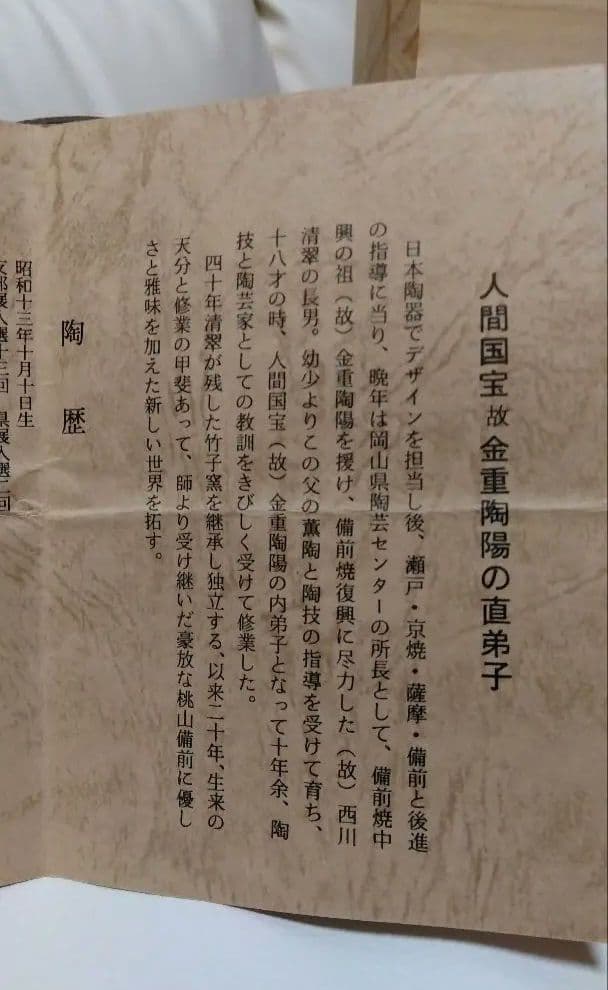 人間国宝 故 金重陶陽の直弟子
日本陶器でデザインを担当し後、瀬戸・京焼・薩摩・備前と後進
の指導に当り、晩年は岡山県陶芸センターの所長として、備前焼中
興の祖(故)金重陶陽を援け、備前焼復興に尽力した(故)西川
清翠の長男。幼少よりこの父の薫陶と陶技の指導を受けて育ち、
十八才の時、人間国宝(故)金重陶陽の内弟子となって十年余、陶
技と陶芸家としての教訓をきびしく受けて修業した。
四十年清翠が残した竹子窯を継承し独立する、以来二十年、生来の
天分と修業の甲斐あって、師より受け継いだ豪放な桃山備前に優し
さと雅味を加えた新しい世界を拓す。
陶歴
昭和十三年十月十日生
部展入選十三回 県展入選二回